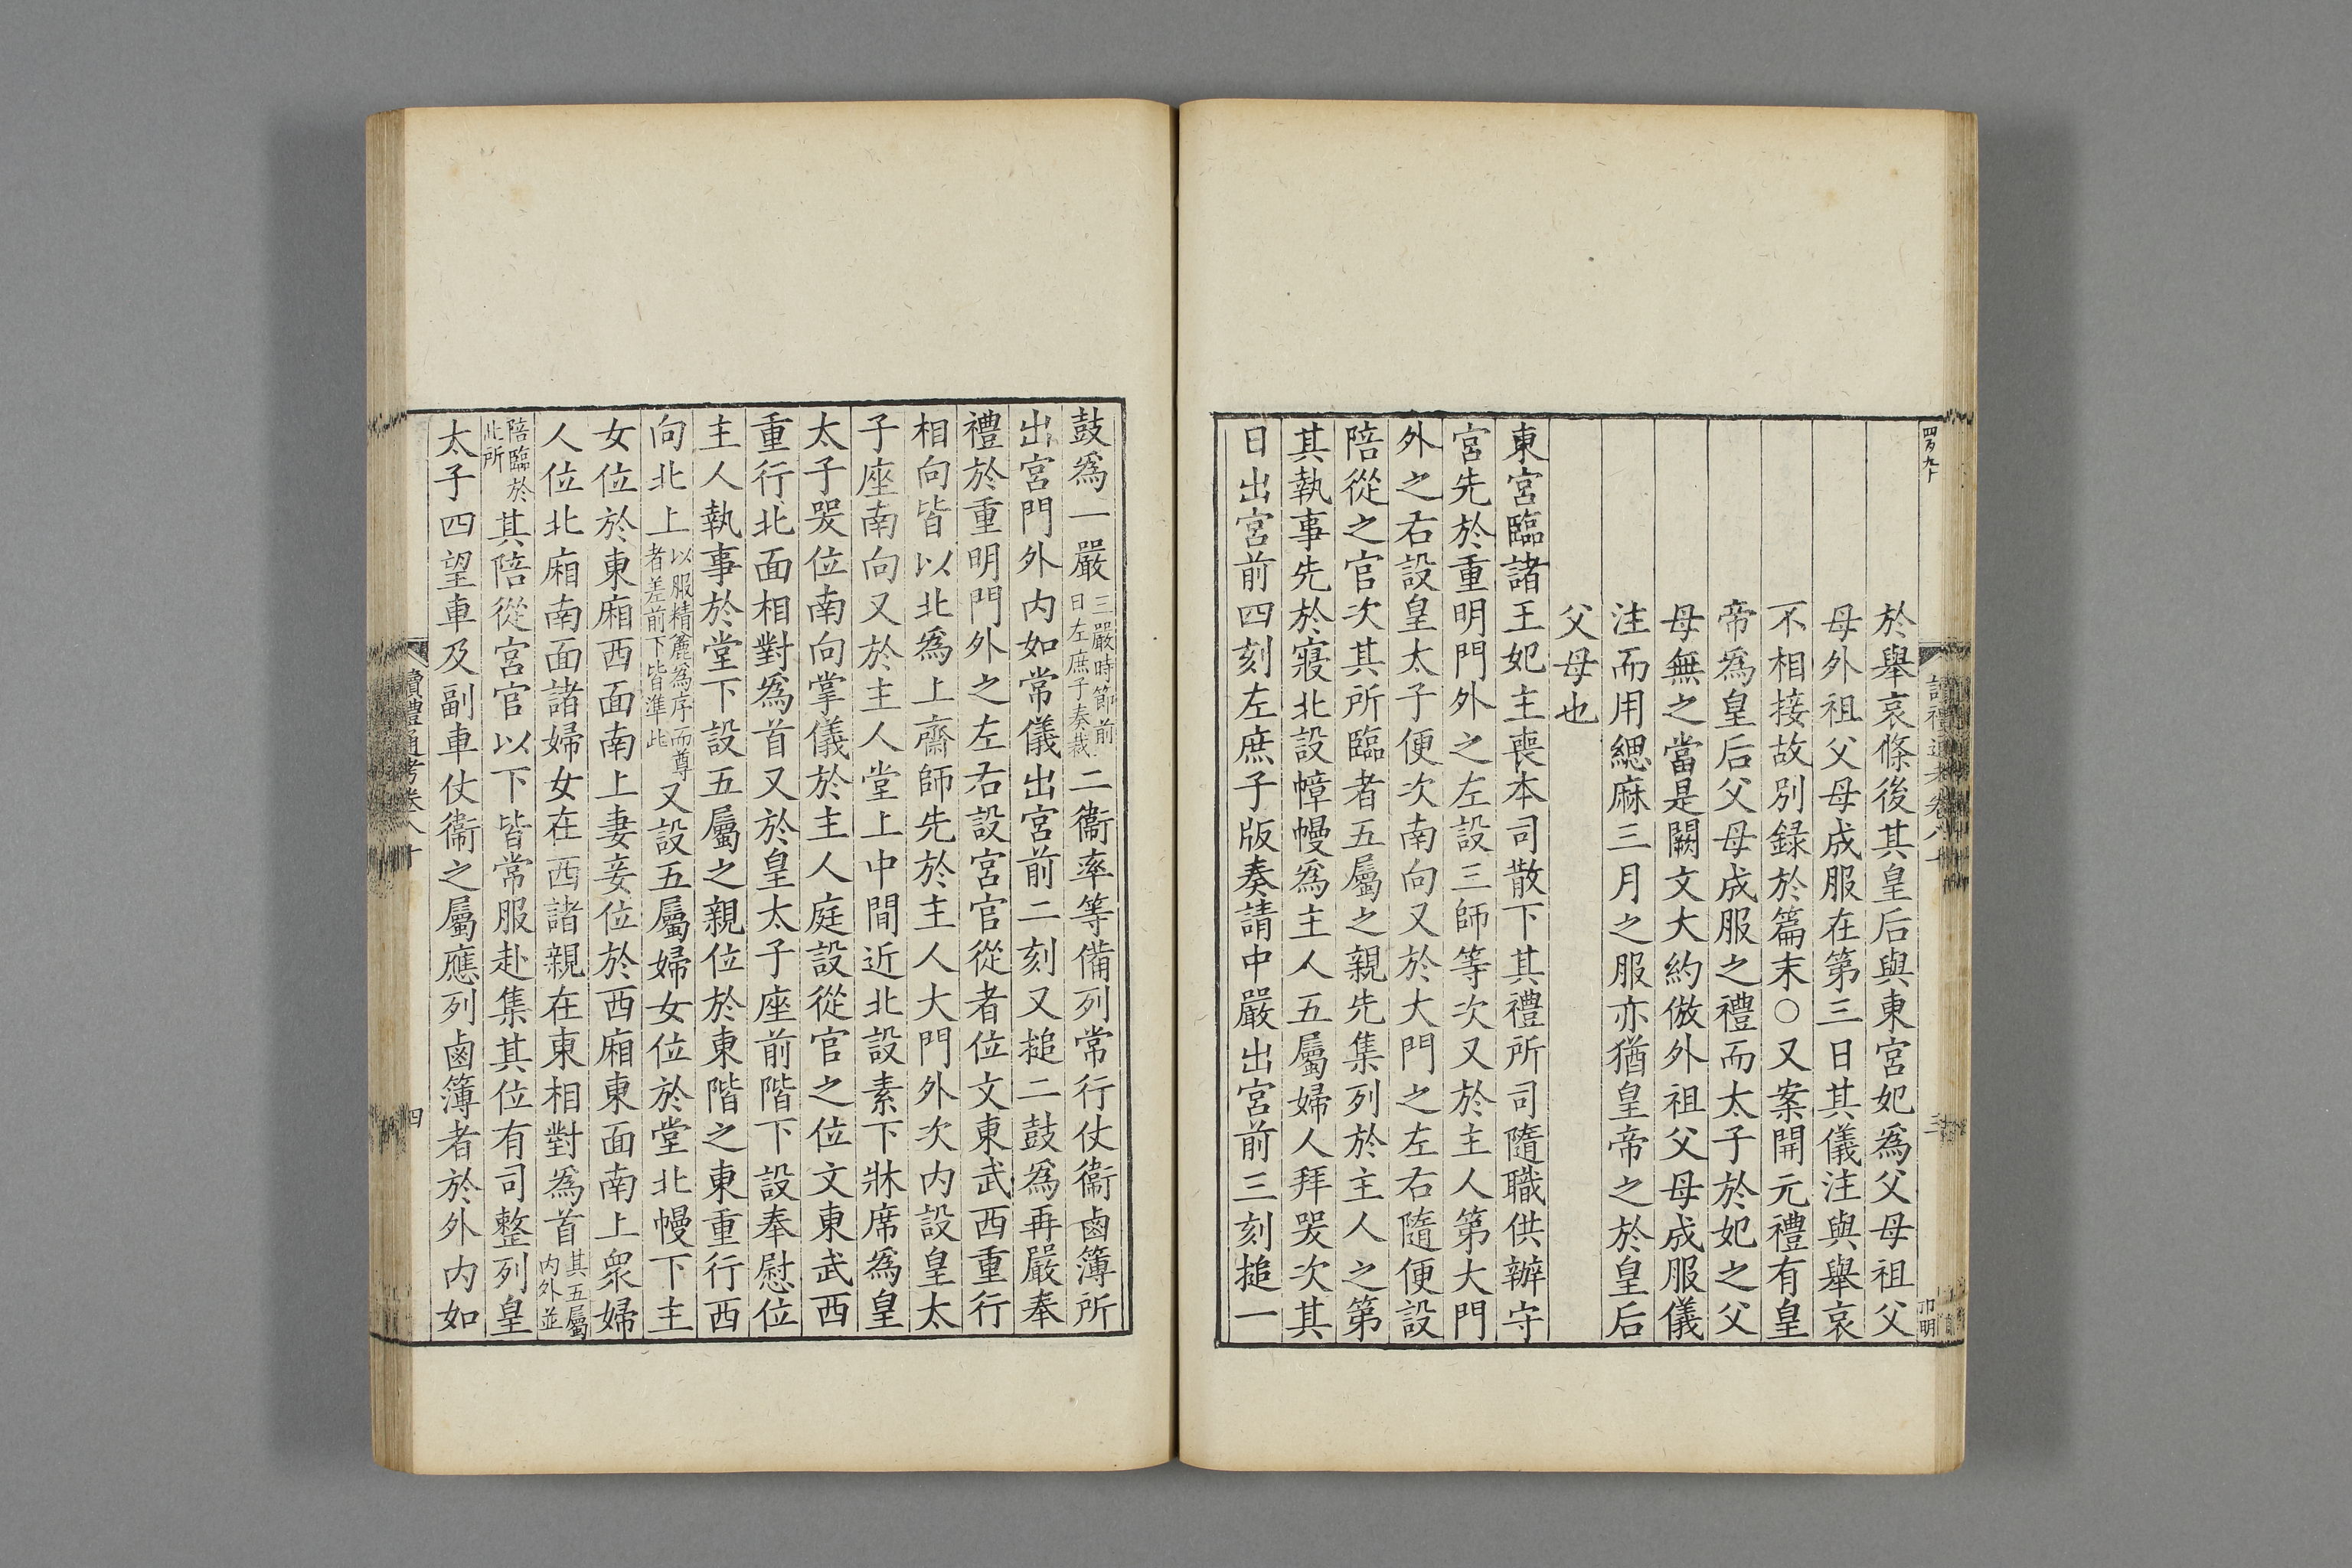 於舉哀條後其皇后與東宮妃爲父母祖父
母外祖父母成服在第三日其儀注與舉哀
不相接故別録於篇末○又案開元禮有皇
帝爲皇后父母成服之禮而太子於妃之父
母無之當是闕文大約倣外祖父母成服儀
注而用緦麻三月之服亦猶皇帝之於皇后
父母也
東宮臨諸王妃主喪本司散下其禮所司隨職供辦守
宮先於重明門外之左設三師等次又於主人第大門
外之右設皇太子便次南向又於大門之左右隨便設
陪從之官次其所臨者五屬之親先集列於主人之第
其執事先於寢北設幛幔爲主人五屬婦人拜哭次其
日出宮前四刻左庶子版奏請中嚴出宮前三刻搥一
鼓爲一嚴三嚴時節前日左庶子奏裁二衞率等備列常行仗衞鹵簿所
出宮門外内如常儀出宮前二刻又搥二鼓爲再嚴奉
禮於重明門外之左右設宮官從者位文東武西重行
相向皆以北爲上齋師先於主人大門外次内設皇太
子座南向又於主人堂上中間近北設素下牀席爲皇
太子哭位南向掌儀於主人庭設從官之位文東武西
重行北面相對爲首又於皇太子座前階下設奉慰位
主人執事於堂下設五屬之親位於東階之東重行西
向北上以服精麄爲序而尊者差前下皆準此又設五屬婦女位於堂北幔下主
女位於東廂西面南上妻妾位於西廂東面南上衆婦
人位北廂南面諸婦女在西諸親在東相對爲首其五屬内外並
陪臨於此所其陪從宮官以下皆常服赴集其位有司整列皇
太子四望車及副車仗衞之屬應列鹵簿者於外内如
讀禮通考卷八十
四